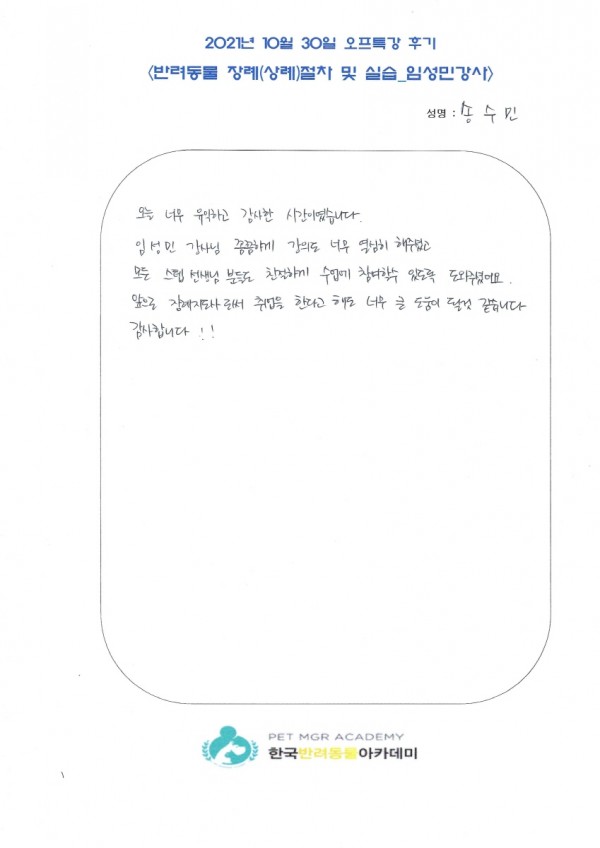 2021년 10월 30일 오프특강 후기
<반려동물 장례(상례)절차 및 실습_임성민강사>
성명 : 송수민
오늘 너무 유익하고 감사한 시간이였습니다.
임성민 강사님 꼼꼼하게 강의도 너무 열심히 해주셨고
모든 스텝 선생님 분들도 친절하게 수업에 참여할수 있도록 도와주셨어요.
앞으로 장례지도사로써 취업을 한다고 해도 너무 큰 도움이 될것 같습니다
감사합니다 !!
PET MGR ACADEMY
한국반려동물아카데미